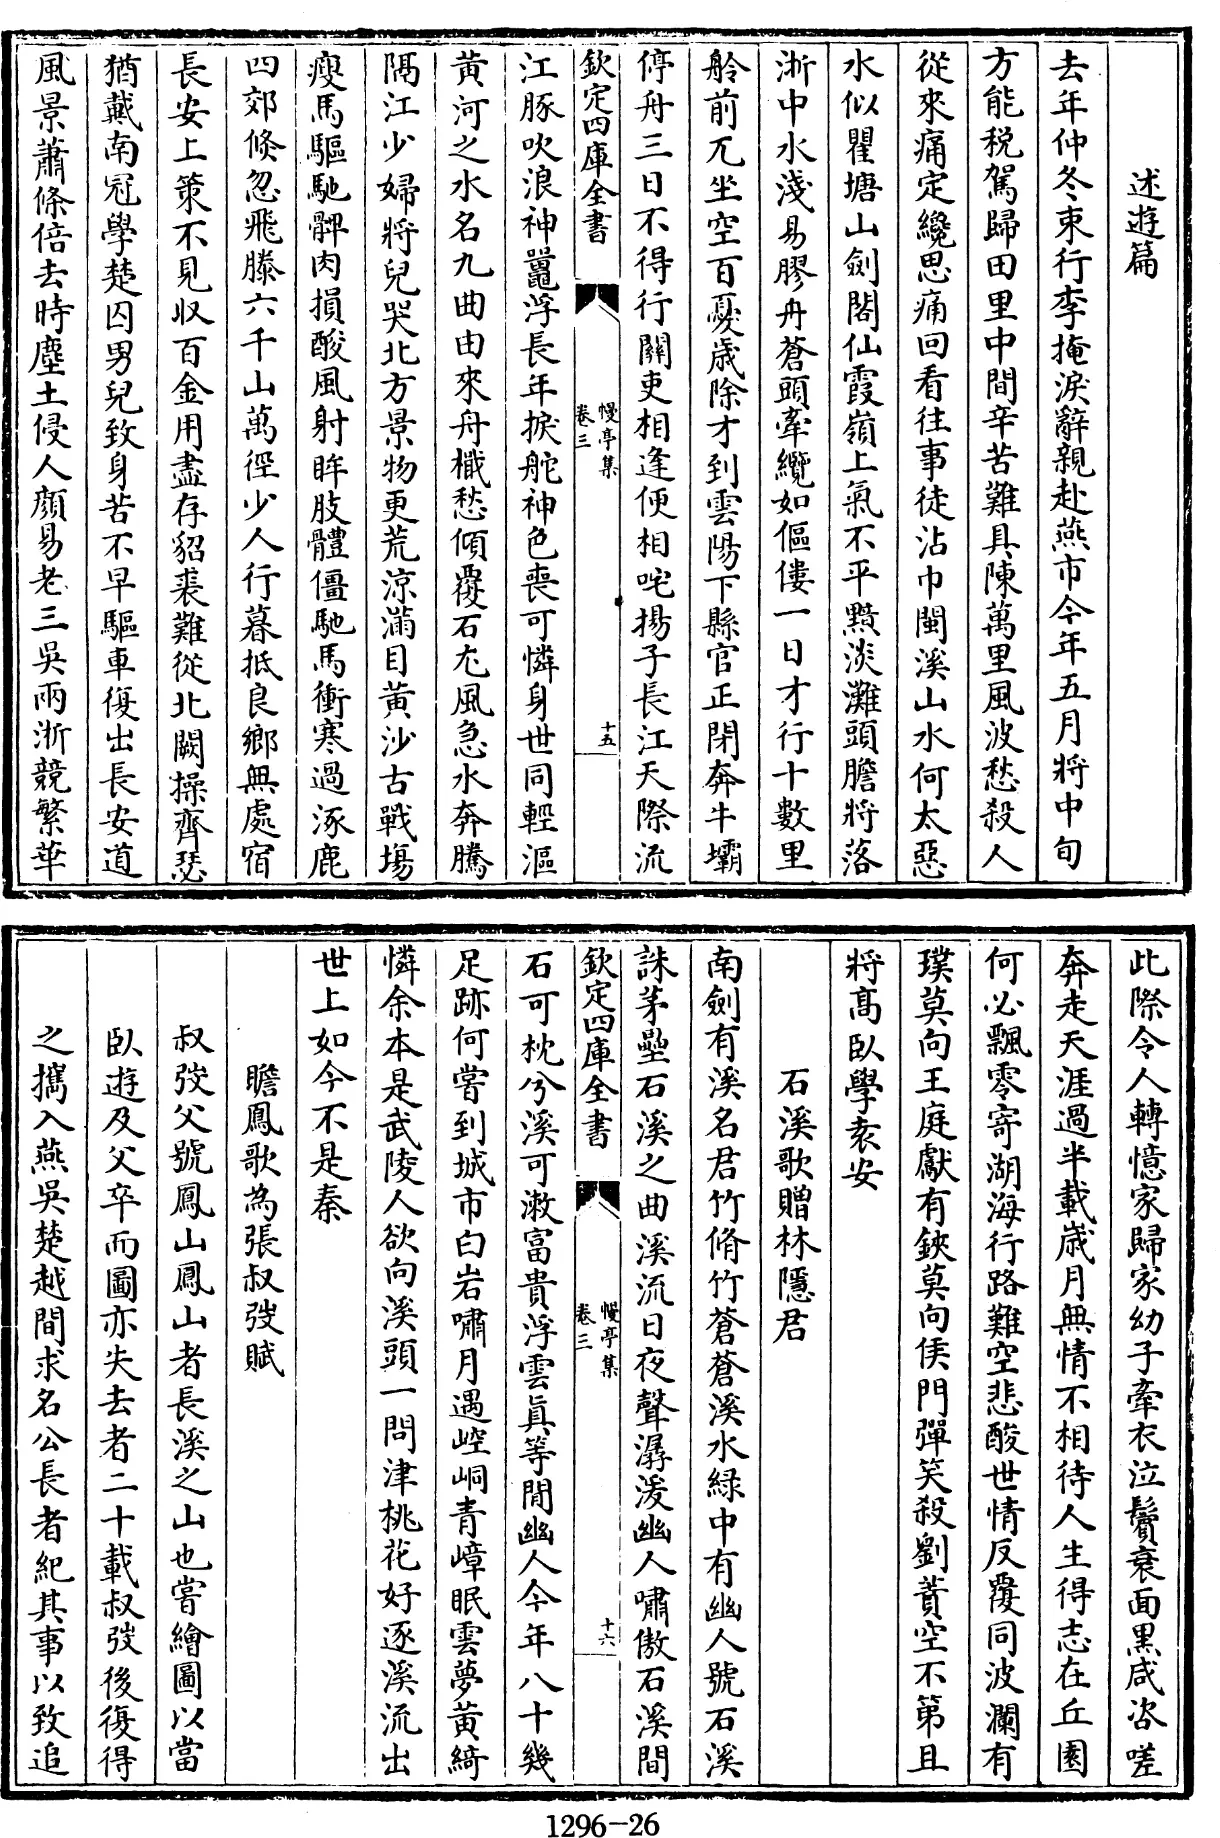 述遊篇
去年仲冬束行李掩淚辭親赴燕市今年五月將中旬
方能税駕歸田里中間辛苦難具陳萬里風波愁殺人
從來痛定纔思痛回看往事徒沾巾閩溪山水何太惡
水似瞿塘山劍閣仙霞嶺上氣不平黯淡灘頭膽將落
浙中水淺易膠舟蒼頭牽纜如傴僂一日才行十數里
舲前兀坐空百憂歲除才到雲陽下縣官正閉奔牛壩
停舟三日不得行關吏相逢便相咤揚子長江天際流
欽定四庫全書
幔亭集
卷三
十五
江豚吹浪神鼉浮長年捩舵神色喪可憐身世同輕漚
黄河之水名九曲由來舟檝愁傾覆石尤風急水奔騰
隔江少婦將兒哭北方景物更荒涼滿目黄沙古戰塲
瘦馬驅馳髀肉損酸風射眸肢體僵馳馬衝寒過涿鹿
四郊倐忽飛滕六千山萬徑少人行暮抵良鄉無處宿
長安上策不見収百金用盡存貂裘難從北闕操齊瑟
猶戴南冠學楚囚男兒致身苦不早驅車復出長安道
風景蕭條倍去時塵土侵人顔易老三吳兩浙競繁華
此際令人轉憶家歸家幼子牽衣泣鬢衰面黑咸咨嗟
奔走天涯過半載歲月無情不相待人生得志在丘園
何必飄零寄湖海行路難空悲酸世情反覆同波瀾有
璞莫向王庭獻有鋏莫向侯門彈笑殺劉蕡空不第且
將髙臥學袁安
石溪歌贈林隱君
南劍有溪名君竹脩竹蒼蒼溪水緑中有幽人號石溪
誅茅壘石溪之曲溪流日夜聲潺湲幽人嘯傲石溪間
欽定四庫全書
幔亭集
卷三
十六
石可枕兮溪可漱富貴浮雲眞等閒幽人今年八十幾
足跡何嘗到城市白岩嘯月遇崆峒青嶂眠雲夢黄綺
憐余本是武陵人欲向溪頭一問津桃花好逐溪流出
世上如今不是秦
瞻鳳歌為張叔弢賦
叔弢父號鳳山鳳山者長溪之山也嘗繪圖以當
臥遊及父卒而圖亦失去者二十載叔弢後復得
之攜入燕吳楚越間求名公長者紀其事以致追
1296-26